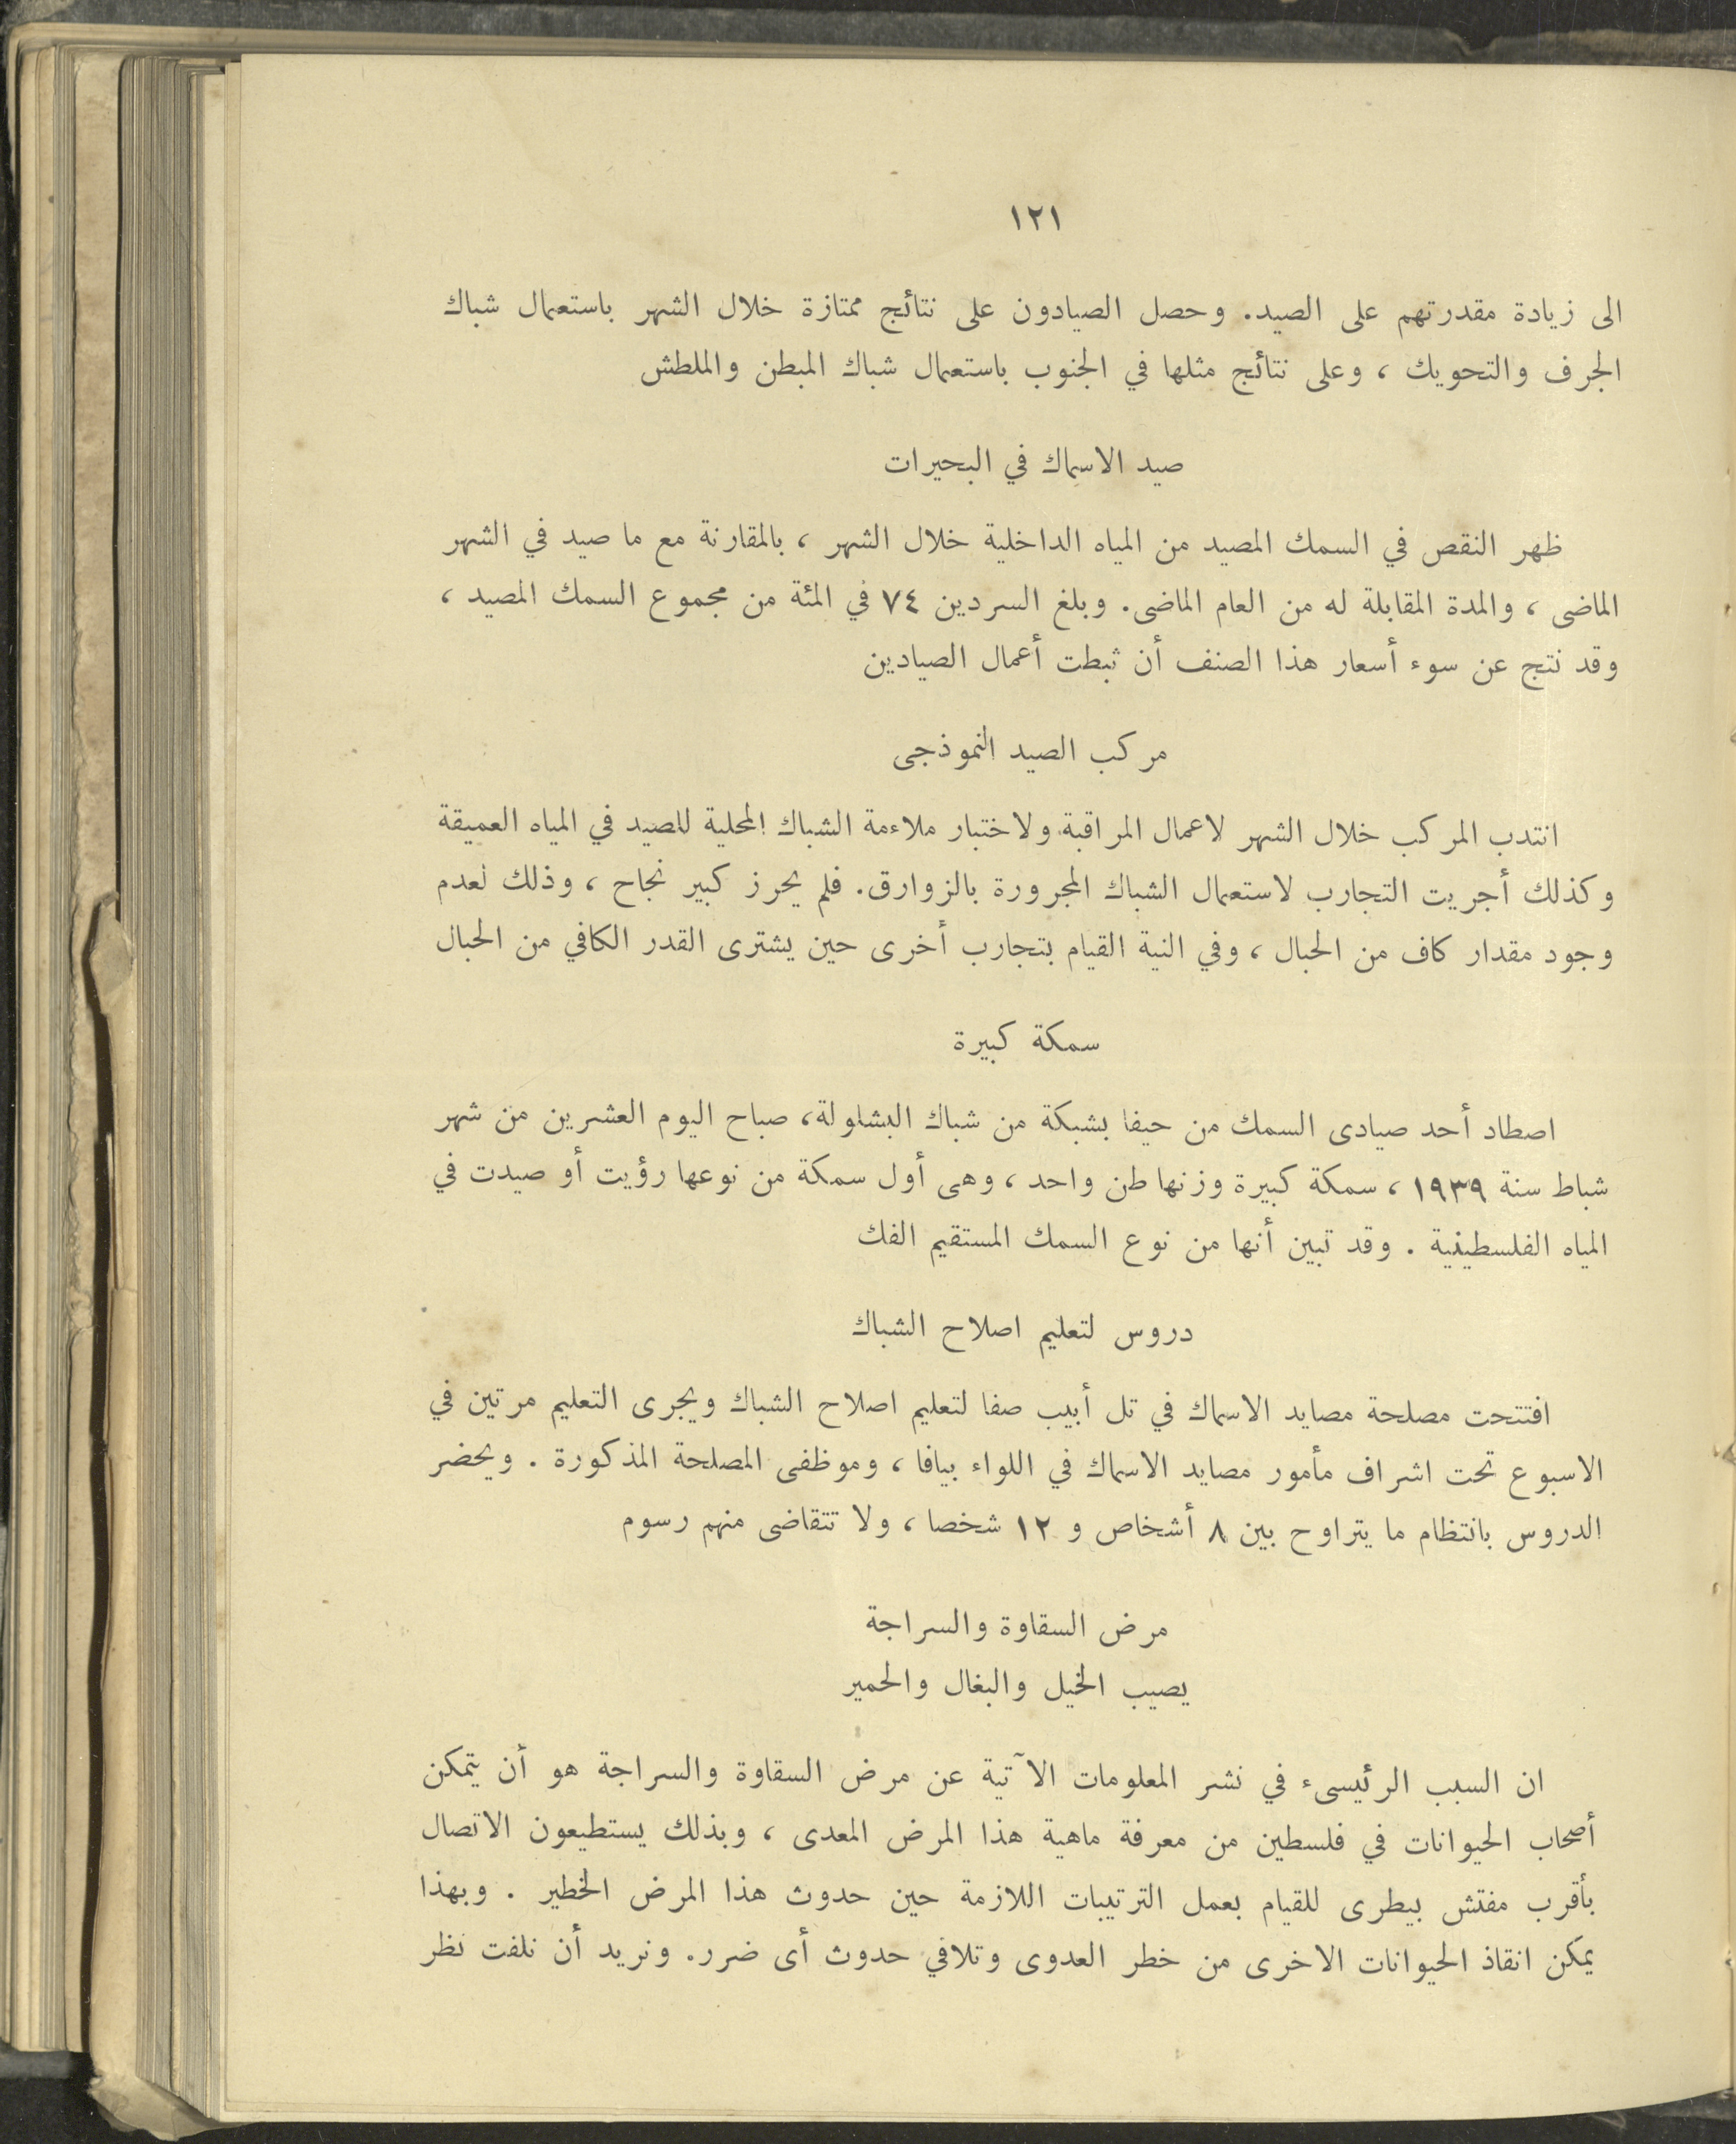 ١٢١
الى زيادة مقدرتهم على الصيد. وحصل الصيادون على نتائج ممتازة خلال الشهر باستعمال شباك
الجرف والتحويك ، وعلى نتائج مثلها في الجنوب باستعمال شباك المبطن والملطش
صيد الاسماك في البحيرات
ظهر النقص في السمك المصيد من المياه الداخلية خلال الشهر ، بالمقارنة مع ما صيد في الشهر
الماضى ، والمدة المقابلة له من العام الماضى. وبلغ السردين ٧٤ في المئة من مجموع السمك المصيد ،
وقد نتج عن سوء أسعار هذا الصنف أن ثبطت أعمال الصيادين
مركب الصيد النموذجى
انتدب المركب خلال الشهر لاعمال المراقبة ولاختبار ملاءمة الشباك المحلية للصيد في المياه العميقة
وكذلك أجريت التجارب لاستعمال الشباك المجرورة بالزوارق. فلم يحرز كبير نجاح ، وذلك لعدم
وجود مقدار كاف من الحبال ، وفي النية القيام بتجارب أخرى حين يشترى القدر الكافي من الحبال
سمكة كبيرة
اصطاد أحد صيادى السمك من حيفا بشبكة من شباك البشلولة، صباح اليوم العشرين من شهر
شباط سنة ١٩٣٩ ، سمكة كبيرة وزنها طن واحد ، وهى أول سمكة من نوعها رؤيت أو صيدت في
المياه الفلسطينية . وقد تبين أنها من نوع السمك المستقيم الفك
دروس لتعليم اصلاح الشباك
افتتحت مصلحة مصايد الاسماك في تل أبيب صفا لتعليم اصلاح الشباك ويجرى التعليم مرتين في
الاسبوع تحت اشراف مأمور مصايد الاسماك في اللواء بيافا ، وموظفى المصلحة المذكورة . ويحضر
الدروس بانتظام ما يتراوح بين ٨ أشخاص و ١٢ شخصا ، ولا تتقاضى منهم رسوم
مرض السقاوة والسراجة
يصيب الخيل والبغال والحمير
ان السبب الرئيسىء في نشر المعلومات الآتية عن مرض السقاوة والسراجة هو أن يتمكن
أصحاب الحيوانات في فلسطين من معرفة ماهية هذا المرض المعدى ، وبذلك يستطيعون الاتصال
بأقرب مفتش بيطرى للقيام بعمل الترتيبات اللازمة حين حدوث هذا المرض الخطير . وبهذا
يمكن انقاذ الحيوانات الاخرى من خطر العدوى وتلافي حدوث أى ضرر. ونريد أن نلفت نظر